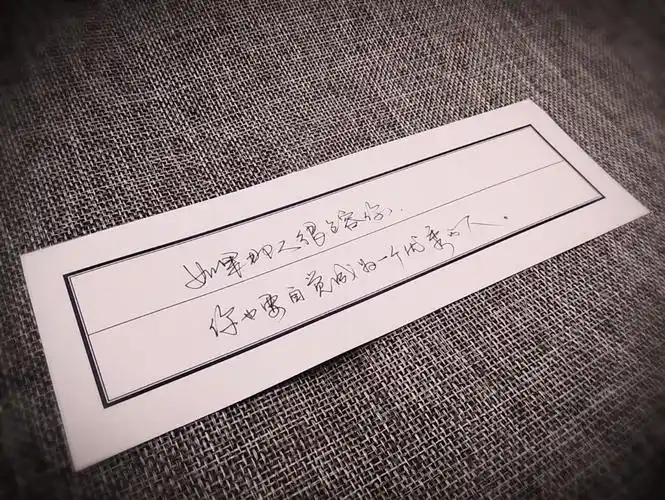 如果那人很包容你，
你也要自觉成为一个优秀的人。